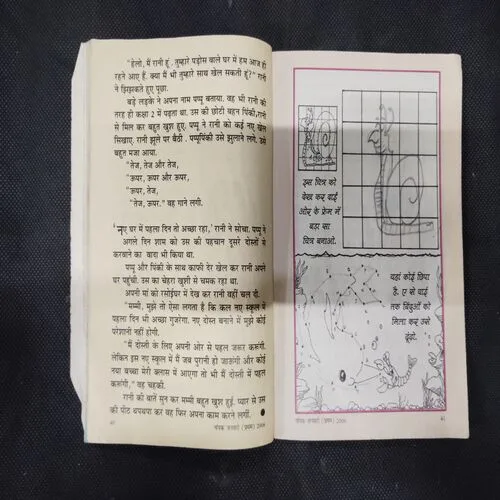 "हेलो, मैं रानी हूं. तुम्हारे पड़ोस वाले घर में हम आज ही
रहने आए हैं. क्या मैं भी तुम्हारे साथ खेल सकती हूं?" रानी
ने झिझकते हुए पूछा.
बड़े लड़के ने अपना नाम पप्पू बताया. वह भी रानी की
तरह ही कक्षा 2 में पढ़ता था. उस की छोटी बहन पिंकी, रानी
से मिल कर बहुत खुश हुए. पप्पू ने रानी को कई नए खेल
सिखाए. रानी झूले पर बैठी. पप्पूपिंकी उसे झुलाने लगे. उसे
बहुत मजा आया.
"तेज, तेज और तेज,
"ऊपर, ऊपर और ऊपर,
"ऊपर, तेज,
"तेज, ऊपर." वह गाने लगी.
'नए घर में पहला दिन तो अच्छा रहा,' रानी ने सोचा. पप्पू ने
अगले दिन शाम को उस की पहचान दूसरे दोस्तों से
करवाने का वादा भी किया था.
पप्पू और पिंकी के साथ काफी देर खेल कर रानी अपने
घर पहुंची. उस का चेहरा खुशी से चमक रहा था.
अपनी मां को रसोईघर में देख कर रानी वहीं चल दी.
"मम्मी, मुझे तो ऐसा लगता है कि कल नए स्कूल में
पहला दिन भी अच्छा गुजरेगा. नए दोस्त बनाने में मुझे कोई
परेशानी नहीं होगी.
"मैं दोस्ती के लिए अपनी ओर से पहल जरूर करूंगी.
लेकिन इस नए स्कूल में मैं जब पुरानी हो जाऊंगी और कोई
नया बच्चा मेरी क्लास में आएगा तो भी मैं दोस्ती में पहल
करूंगी," वह चहकी.
रानी की बातें सुन कर मम्मी बहुत खुश हुईं. प्यार से उस
की पीठ थपथपा कर वह फिर अपना काम करने लगीं.
40
चंपक जनवरी (प्रथम) 2006
इस चित्र को
देख कर दाईं
ओर के फ्रेम में
बड़ा सा
चित्र बनाओ.
यहां कोई छिपा
है. ए से वाई
तक बिंदुओं को
मिला कर उसे
ढूंढ़ो.
चंपक जनवरी (प्रथम) 2006
41